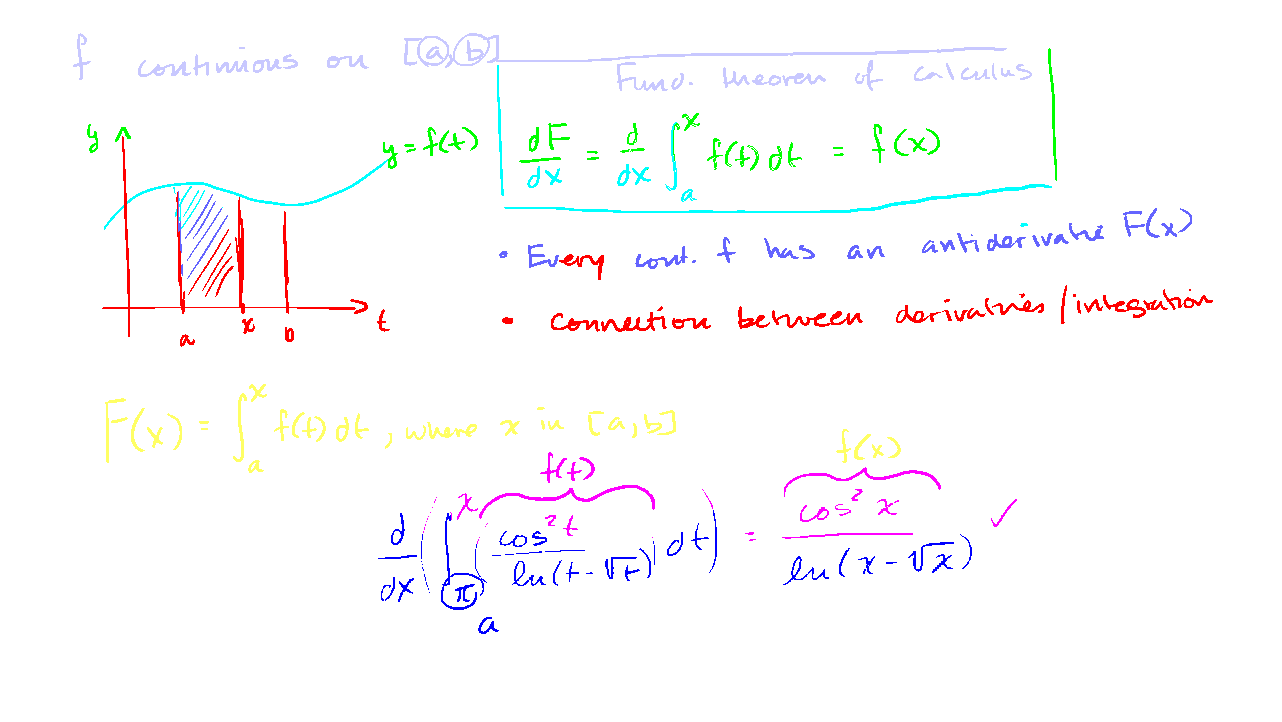 f continuous on [a, b]
Fund. theorem of calculus
y
y = f(t)
dF/dx = d/dx ∫_a^x f(t) dt = f(x)
• Every cont. f has an antiderivative F(x)
a x b t
• connection between derivatives / integration
F(x) = ∫_a^x f(t) dt, where x in [a, b]
f(t) f(x)
d/dx ( ∫_π^x ( cos² t / ln(t - √t) ) dt ) = cos² x / ln(x - √x) ✓
a